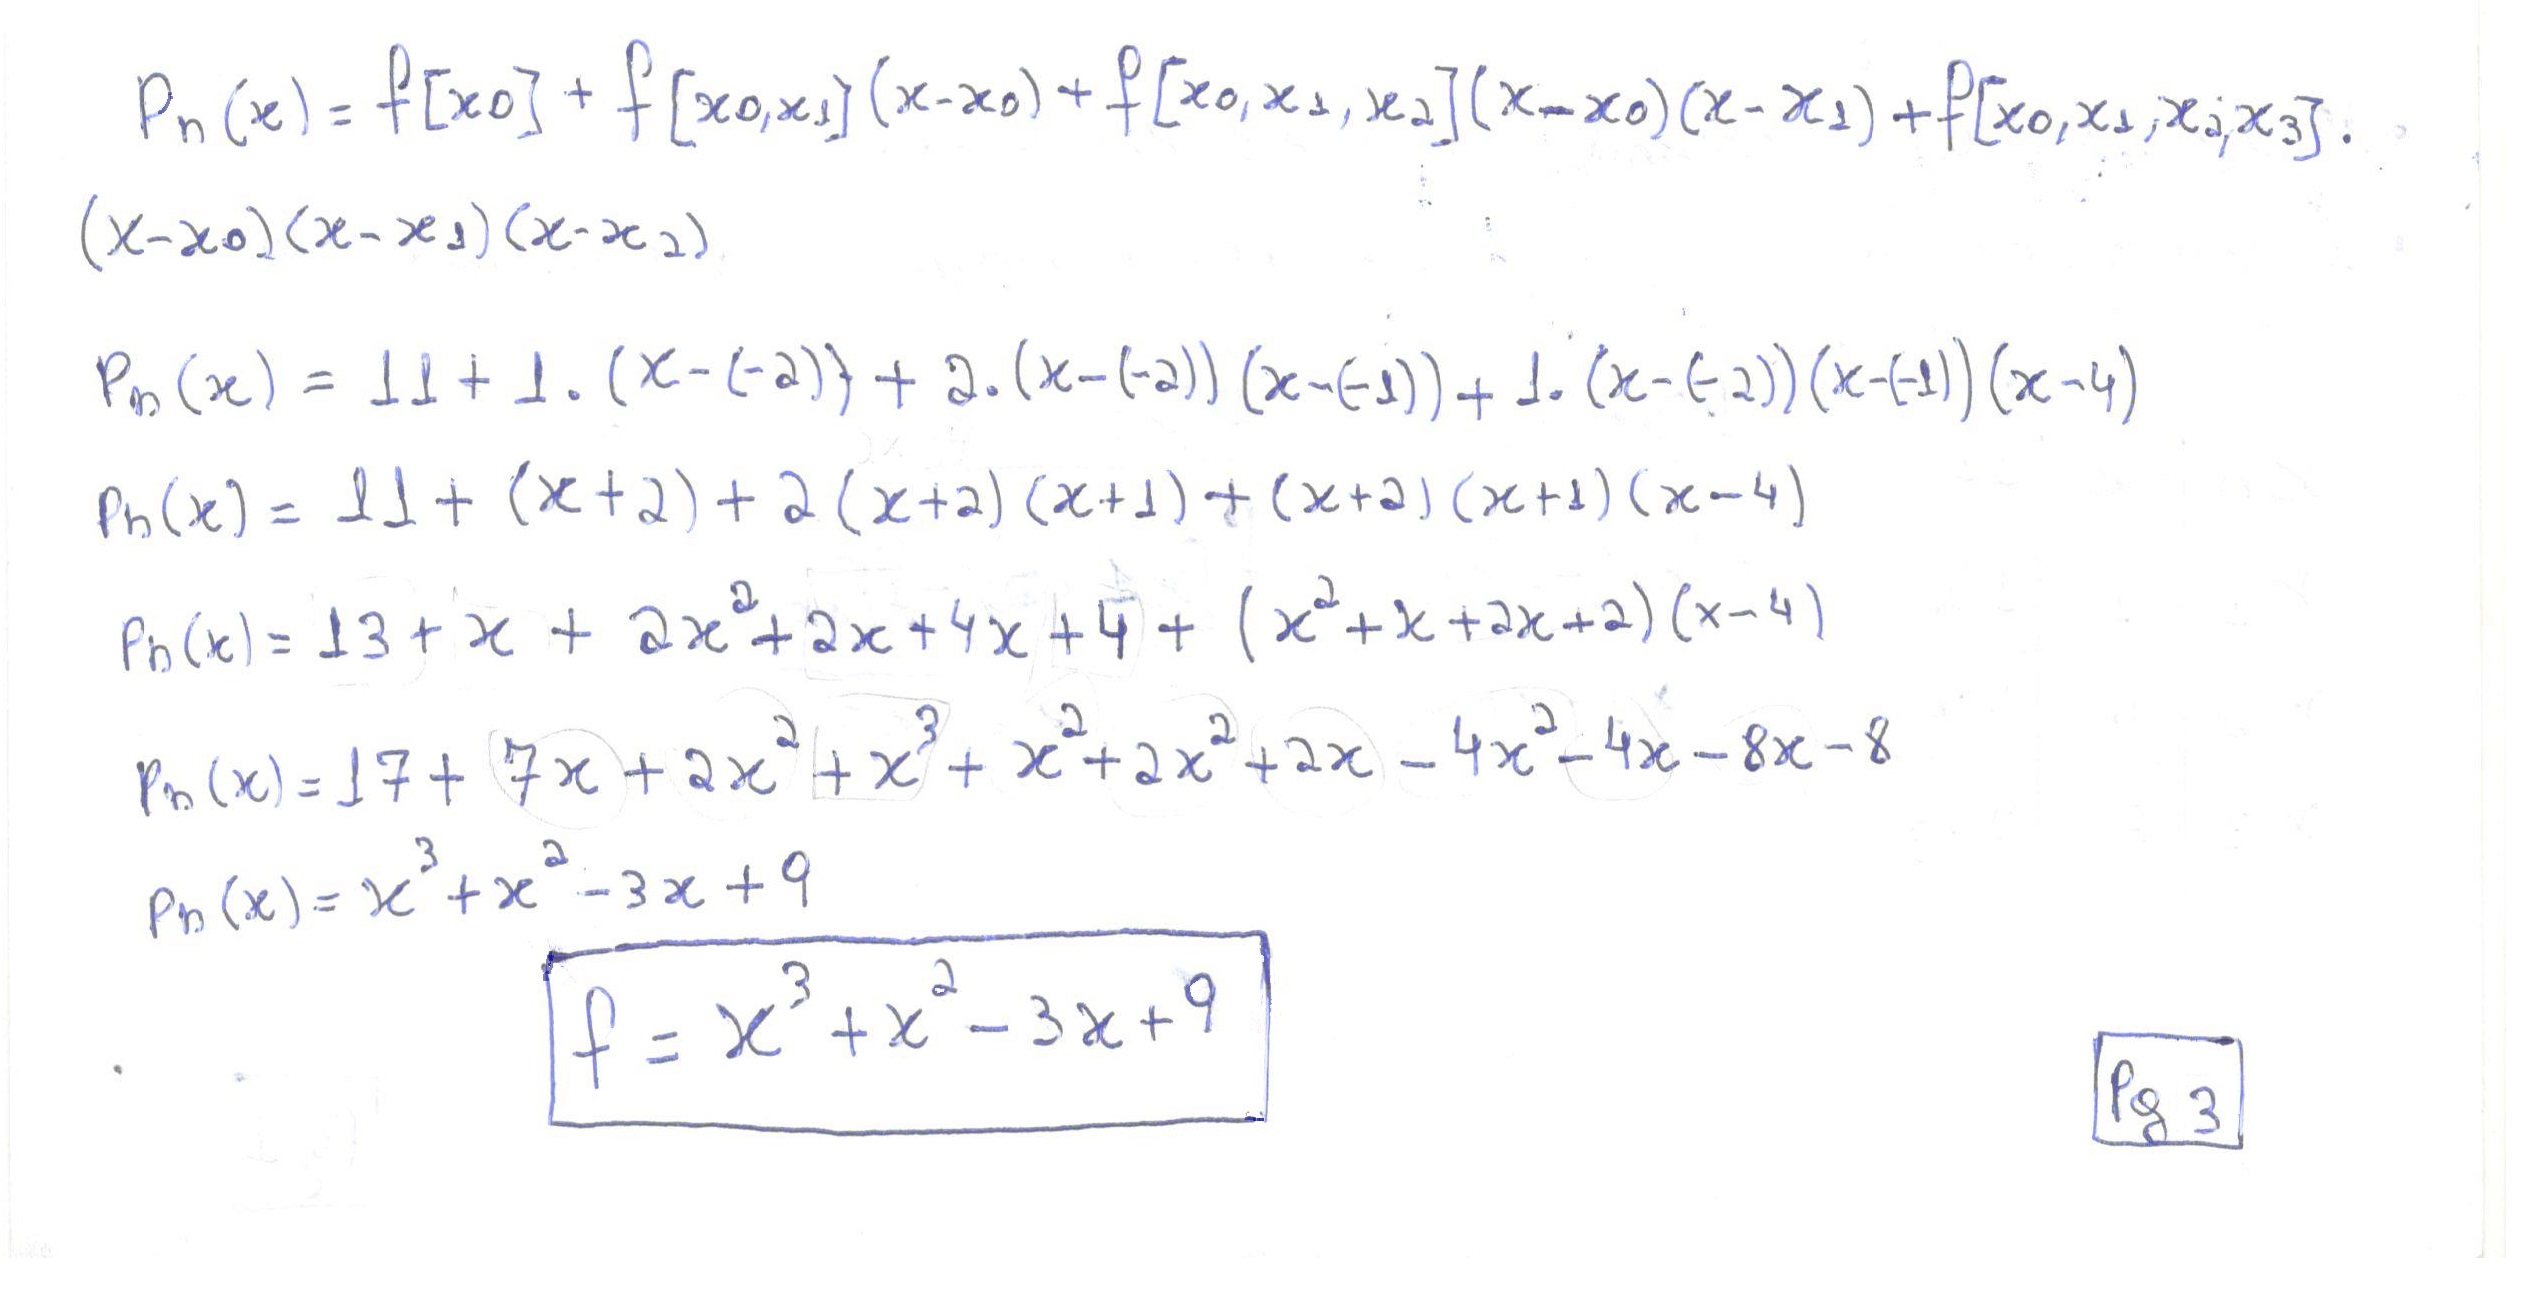 Pn(x) = f[x0] + f[x0,x1](x-x0) + f[x0,x1,x2](x-x0)(x-x1) + f[x0,x1,x2,x3].
(x-x0)(x-x1)(x-x2)
Pn(x) = 11 + 1.(x-(-2)) + 2.(x-(-2))(x-(-1)) + 1.(x-(-2))(x-(-1))(x-4)
Pn(x) = 11 + (x+2) + 2(x+2)(x+1) + (x+2)(x+1)(x-4)
Pn(x) = 13 + x + 2x² + 2x + 4x + 4 + (x² + x + 2x + 2)(x-4)
Pn(x) = 17 + 7x + 2x² + x³ + x² + 2x² + 2x - 4x² - 4x - 8x - 8
Pn(x) = x³ + x² - 3x + 9
f = x³ + x² - 3x + 9
Pg 3